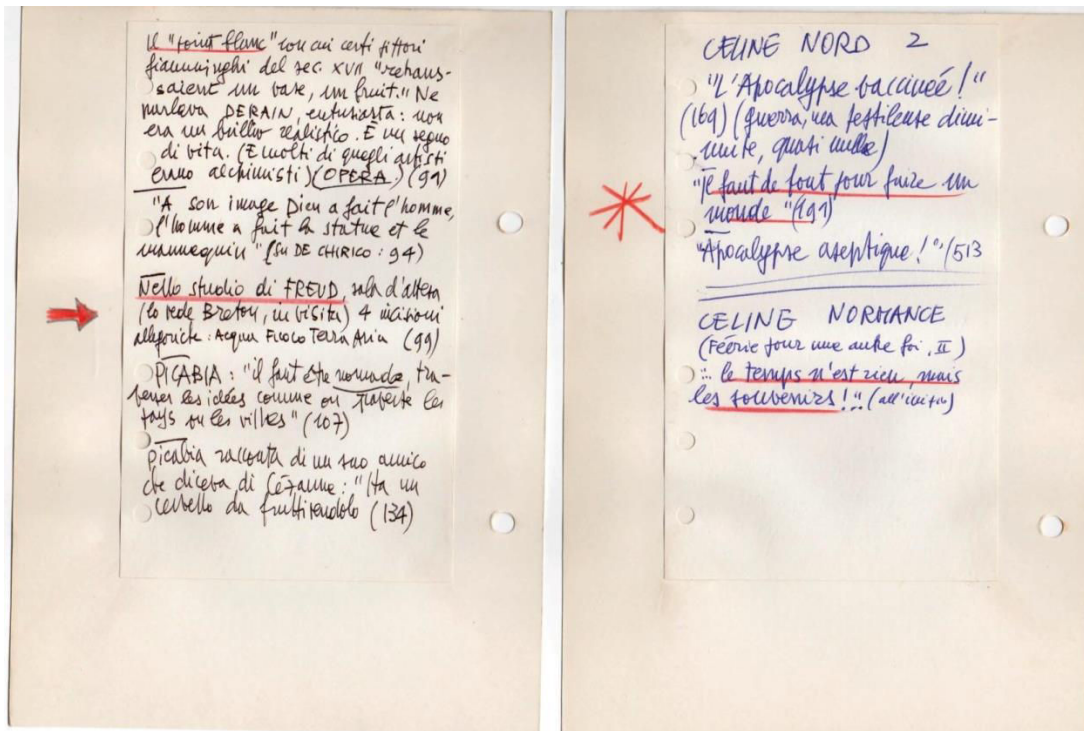 Il "point blanc" con cui certi pittori
fiamminghi del sec. XVII "rehaus-
saient un vase, un fruit." Ne
parlava DERAIN, entusiasta: non
era un brillio realistico. È un segno
di vita. (E molti di quegli artisti
erano alchimisti) (OPERA) (91)
"A son image Dieu a fait l'homme,
l'homme a fait la statue et le
mannequin" (su DE CHIRICO: 94)
Nello studio di FREUD, sala d'attesa
(lo vede Breton, in visita) 4 incisioni
allegoriche: Acqua Fuoco Terra Aria (99)
PICABIA: "il faut être nomade, tra-
verser les idées comme on traverse les
pays ou les villes" (107)
Picabia racconta di un suo amico
che diceva di Cézanne: "Ha un
cervello da fruttivendolo (134)
CELINE NORD 2
"L'Apocalypse vaccinée!"
(169) (guerra, ma pestilenze dimi-
nuite, quasi nulle)
"Il faut de tout pour faire un
monde" (191)
"Apocalypse aseptique!" (513
CELINE NORMANCE
(Féerie pour une autre foi, II)
"... le temps n'est rien, mais
les souvenirs!..." (all'inizio)